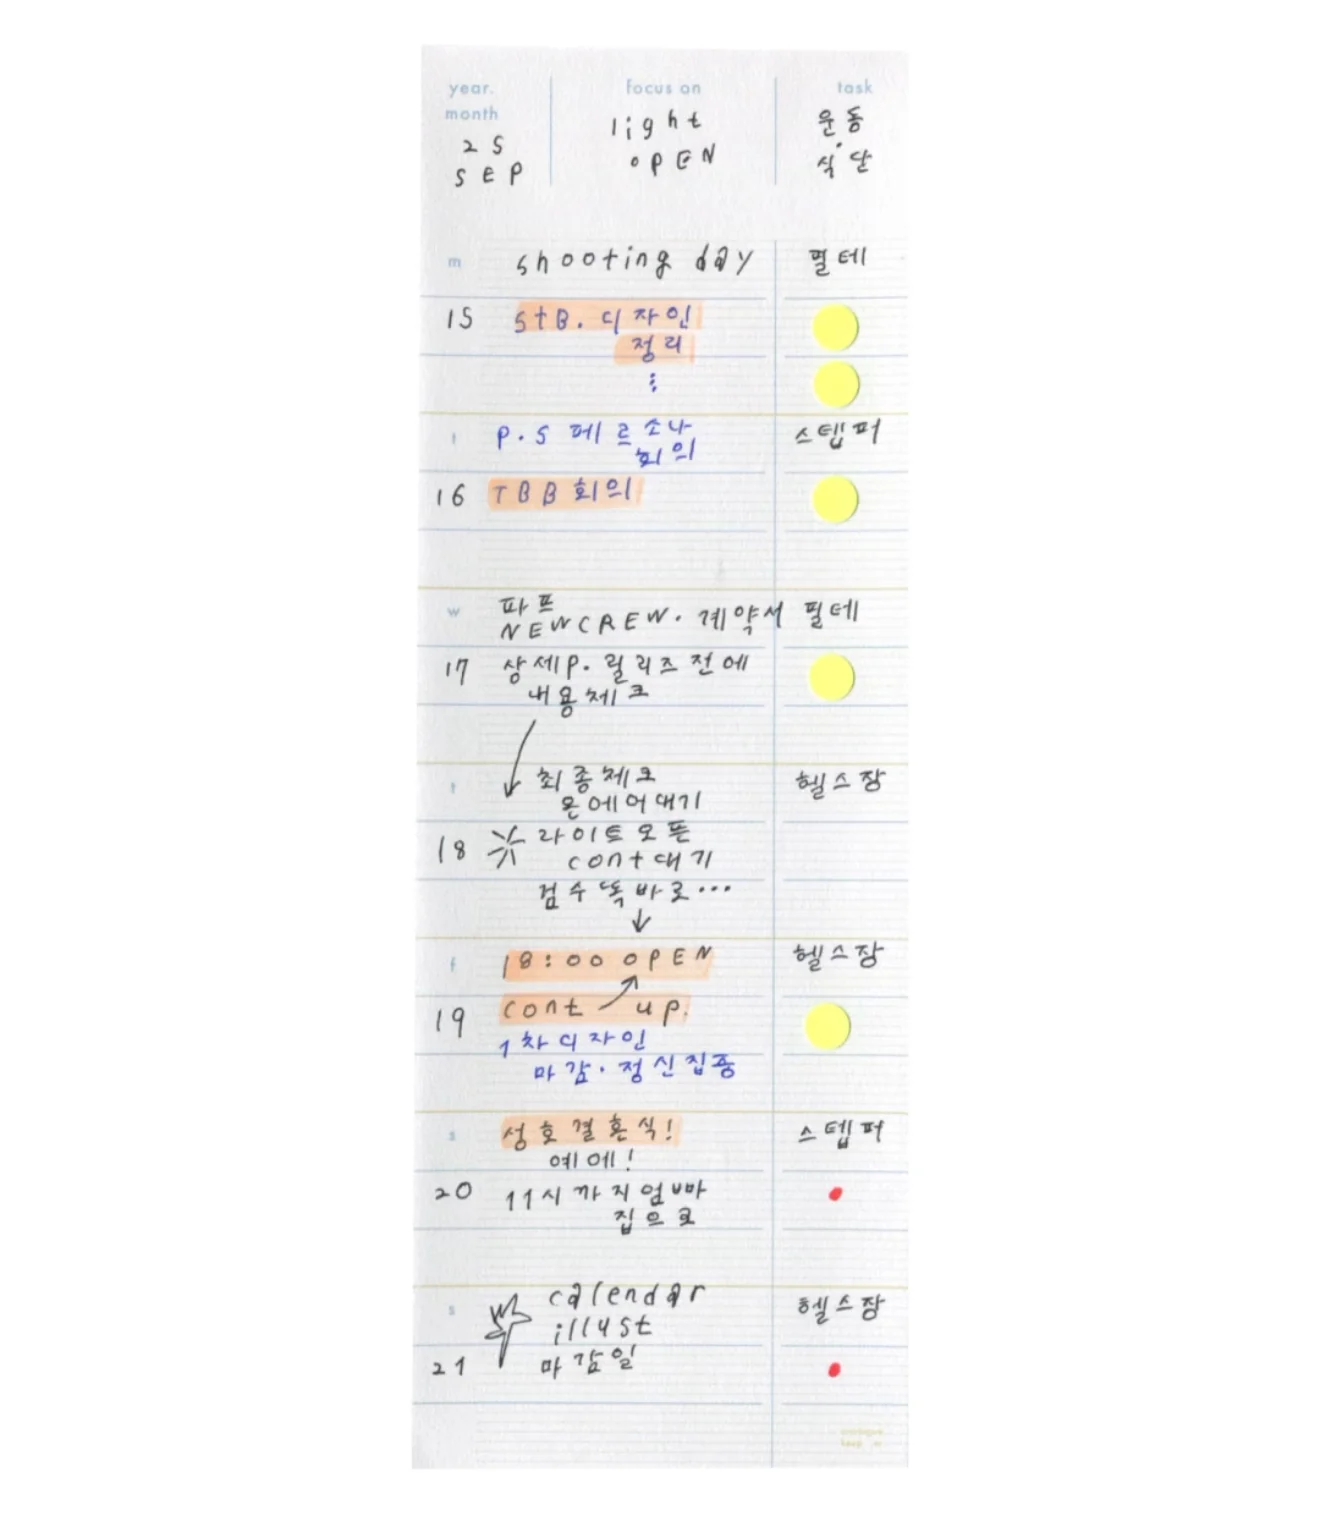 year.
month
25
SEP
focus on
light
OPEN
task
운동
식단
m
shooting day
필테
15
STB. 디자인
정리
⋮
t
P.S 페르소나
회의
스텝퍼
16
TBB 회의
w
파프
NEWCREW. 계약서
필테
17
상세P. 릴리즈 전에
내용체크
t
최종체크
온에어대기
헬스장
18
라이트오픈
cont대기
검수똑바로...
f
18:00 OPEN
헬스장
19
cont up.
1차디자인
마감. 정신집중
s
성호결혼식!
예에!
스텝퍼
20
11시까지엄빠
집으로
s
calendar
illust
헬스장
21
마감일